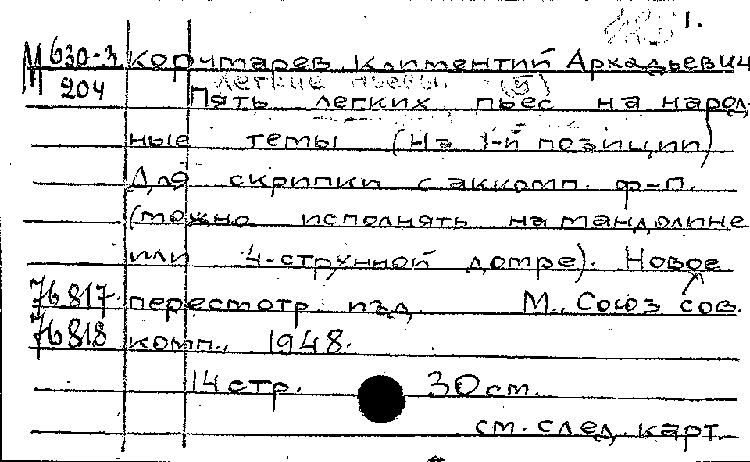 1.
М 630-3 Корчмарев, Климентий Аркадьевич
204 Легкие пьесы. (5)
Пять легких пьес на народ-
ные темы (На 1-й позиции)
Для скрипки с аккомп. ф-п.
(можно исполнять на мандолине
или 4-струнной домре). Новое
76817. пересмотр. изд. М., Союз сов.
76818 комп., 1948.
14 стр. 30 см.
см. след. карт.